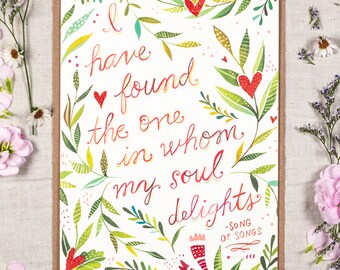 I
have
found
the one
in whom
my soul
delights
-SONG
OF SONGS